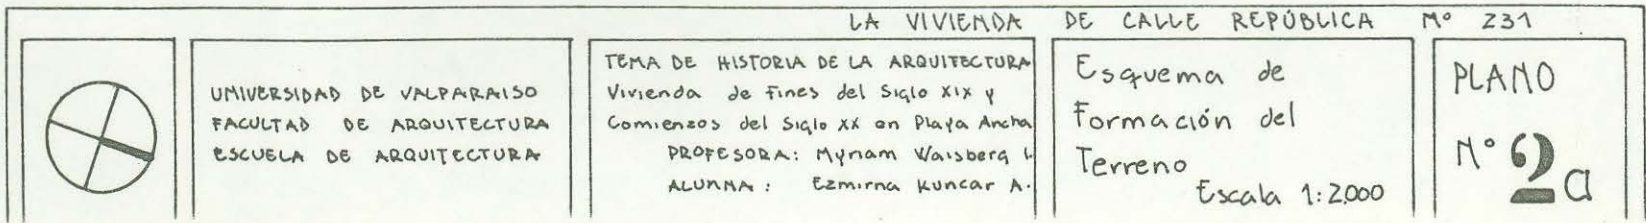 LA VIVIENDA DE CALLE REPÚBLICA Nº 231
UNIVERSIDAD DE VALPARAISO
FACULTAD DE ARQUITECTURA
ESCUELA DE ARQUITECTURA
TEMA DE HISTORIA DE LA ARQUITECTURA
Vivienda de Fines del Siglo XIX y
Comienzos del Siglo XX en Playa Ancha
PROFESORA: Myriam Waisberg I.
ALUMNA: Ezmirna Kuncar A.
Esquema de
Formación del
Terreno
Escala 1:2000
PLANO
Nº 2a